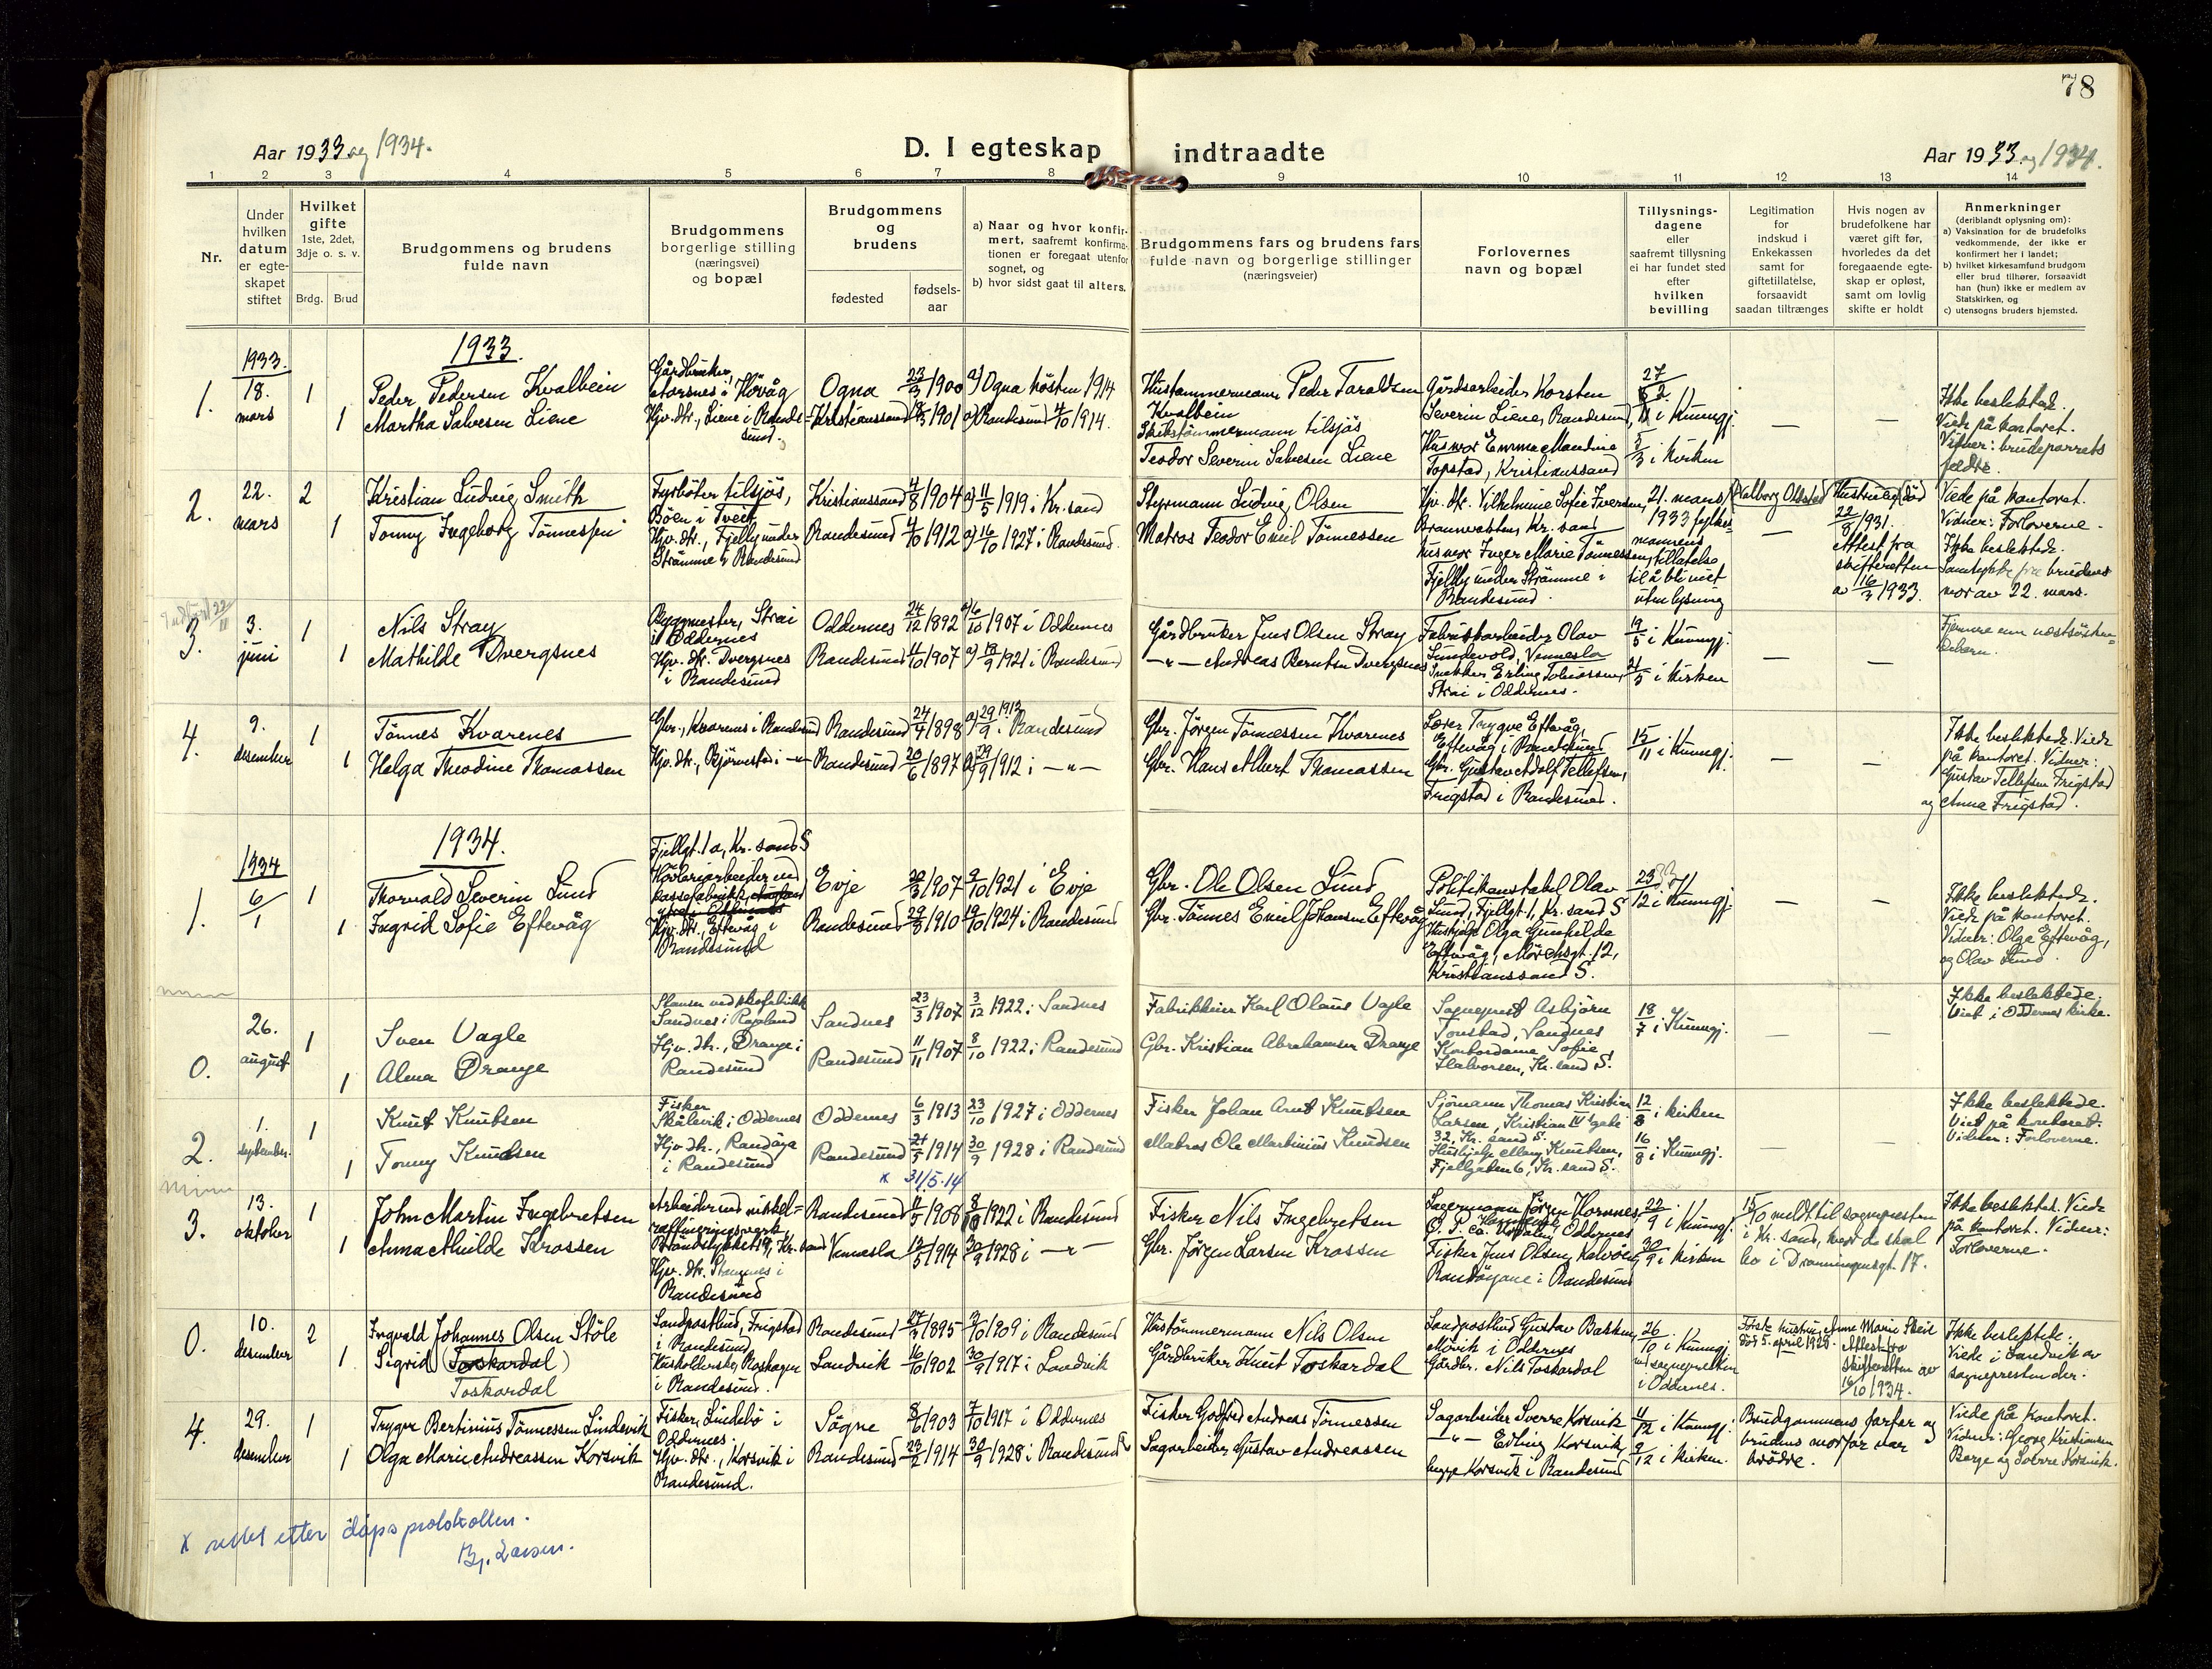 78
Aar 1933 og 1934.
D. I egteskap indtraadte
Aar 1933 og 1934.
1 2 3 4 5 6 7 8 9 10 11 12 13 14
Nr.
Under
hvilken
datum
er egte-
skapet
stiftet
Hvilket
gifte
1ste, 2det,
3dje o. s. v.
Brdg. Brud
Brudgommens og brudens
fulde navn
Brudgommens
borgerlige stilling
(næringsvei)
og bopæl
Brudgommens
og
brudens
fødested
fødsels-
aar
a) Naar og hvor konfir-
mert, saafremt konfirma-
tionen er foregaat utenfor
sognet, og
b) hvor sidst gaat til alters.
Brudgommens fars og brudens fars
fulde navn og borgerlige stillinger
(næringsveier)
Forlovernes
navn og bopæl
Tillysnings-
dagene
eller
saafremt tillysning
ei har fundet sted
efter
hvilken
bevilling
Legitimation
for
indskud i
Enkekassen
samt for
giftetillatelse,
forsaavidt
saadan tiltrænges
Hvis nogen av
brudefolkene har
været gift før,
hvorledes da det
foregaaende egte-
skap er opløst,
samt om lovlig
skifte er holdt
Anmerkninger
(deriblandt oplysning om):
a) Vaksination for de brudefolks
vedkommende, der ikke er
konfirmert her i landet;
b) hvilket kirkesamfund brudgom
eller brud tilhører, forsaavidt
han (hun) ikke er medlem av
Statskirken, og
c) utensogns bruders hjemsted.
1933.
1933.
1.
18.
mars
1
1
Peder Pedersen Kvalbein
Martha Salvesen Liene
Gårdbruker,
i Høvåg
Hjv. dtr., Liene i Rande-
sund.
Ogna 23/3 1900 a) Ogna høsten 1914
Kristianssand 1901 a) Randesund 4/10 1914.
Hustømmermann Peder Taraldsen
Kvalbein
Skibstømmermann tilsjøs
Teodor Severin Salvesen Liene
Gårdsarbeider Karsten
Severin Liene, Randesund,
Husmor Emma Mandine
Topstad, Kristianssand
i Kunngj.
5/3 i kirken
Ikke beslektede.
Viede på kontoret.
Vidner: brudeparrets
fedre.
2.
22.
mars
2
1
Kristian Ludvig Smith
Tonny Ingeborg Tønnessen
Fyrbøter tilsjøs,
Böen i Tveit
Hjv. dtr., Fjelly under
Strømme i Randesund
Kristianssand 4/8 1904 a) 11/5 1919 i Kr.sand
Randesund 1912 a) 16/10 1927 i Randesund.
Styrmann Ludvig Olsen
Matros Teodor Emil Tønnessen
Hjv. dtr. Vilhelmine Sofie Iversen,
Kr. sand
Husmor Inger Marie Tønnessen,
Fjelly under Strømme i
Randesund.
21. mars
1933 fylkes-
mannens
tillatelse
til å bli viet
uten lysning
Hustru død
22/8 1931.
Attest fra
skifteretten
av 16/3 1933.
Viede på kontoret.
Vidner: Forloverne.
Ikke beslektede.
Samtykke fra brudens
mor av 22. mars.
3.
3.
juni
1
1
Nils Stray
Mathilde Dvergsnes
Byggmester, Strai
i Oddernes
Hjv. dtr. Dvergsnes
i Randesund
Oddernes 24/12 1892 a) 6/10 1907 i Oddernes
Randesund 11/10 1907 a) 18/9 1921 i Randesund
Gårdbruker Jens Olsen Stray
—"— Andreas Berntsen Dvergsnes
Fabrikkarbeider Olav
Lundevold, Vennesla
Snekker Erling Tobiassen,
Strai i Oddernes.
19/5 i Kunngj.
21/5 i kirken
Fjernere enn næstsøsken-
barn.
4.
9.
desember
1
1
Tønnes Kvarenes
Helga Theodine Thomassen
Gbr., Kvarenes i Randesund
Hjv. dtr., Bjørnestø i —"—
Randesund 24/4 1898 a) 29/9 1913 i Randesund
Randesund 20/6 1897 a) 29/9 1912 i —"—
Gbr. Jørgen Tønnessen Kvarnes
Gbr. Hans Albert Thomassen
Lærer Trygve Eftevåg,
Eftevåg i Randesund
Gbr. Gustav Adolf Tellefsen,
Frigstad i Randesund.
15/11 i Kunngj.
Ikke beslektede. Viede
på kontoret. Vidner:
Gustav Tellefsen Frigstad
og Anna Frigstad.
1934.
1934
1.
6/1
1
1
Thorvald Severin Lund
Ingrid Sofie Eftevåg
Fjellgt. 1a, Kr. sand S
Høvleriarbeider ved
kassefabrikk,
Hjv. dtr., Eftevåg i
Randesund
Evje 20/3 1907 2/10 1921 i Evje
Randesund 1910 19/10 1924 i Randesund
Gbr. Ole Olsen Lund
Gbr. Tønnes Emil Johansen Eftevåg
Politikonstabel Olav
Lund, Fjellgt. 1, Kr. sand S
Hushjelp Olga Gunhilde
Eftevåg, Mörchsgt. 12,
Kristianssand S.
23/12 i Kunngj.
Ikke beslektede.
Viede på kontoret.
Vidner: Olga Eftevåg,
og Olav Lund.
0.
26.
august
1
1
Sven Vagle
Alma Drange
Stanser ved skofabrikk
Sandnes i Rogaland
Hjv. dtr., Drange i
Randesund
Sandnes 23/3 1907 3/12 1922 i Sandnes
Randesund 11/11 1907 8/10 1922 i Randesund
Fabrikkeier Karl Olaus Vagle
Gbr. Kristian Abrahamsen Drange
Sogneprest Asbjørn
Tonstad, Sandnes
Kontordame Sofie
Halvorsen, Kr. sand S.
18/7 i Kunngj.
Ikke beslektede.
Viet i Oddernes kirke.
2.
1.
september
1
1
Knut Knutsen
Tonny Knudsen
Fisker
Skålevik i Oddernes
Hjv. dtr., Randøya
i Randesund
Oddernes 6/3 1913 23/10 1927 i Oddernes
Randesund 21/5 1914 30/9 1928 i Randesund
x 31/5-14
Fisker Johan Arnt Knutsen
Matros Ole Martinius Knudsen
Sjømann Thomas Kristian
Larsen, Kristian IV gate
32, Kr. sand S.
Hushjelp Mary Knutsen,
Fjellgaten 6, Kr. sand S.
12/8 i kirken
16/8 i Kunngj.
Ikke beslektede.
Viet på kontoret.
Vidner: Forloverne.
3.
13.
oktober
1
1
John Martin Ingebretsen
Anna Milde Krossen
Arbeider ved nikkel-
raffineringsverk,
Kr. sand
Hjv. dtr. Stemnes i
Randesund
Randesund 1908 8/10 1922 i Randesund
Vennesla 1914 30/9 1928 i —"—
Fisker Nils Ingebretsen
Gbr. Jørgen Larsen Krossen
Lagermann Jørgen Hornnes,
Oddernes
Fisker Jens Olsen, Kalvøen,
Randøyane i Randesund
22/9 i Kunngj.
30/9 i kirken
15/10 meldt til sognepresten
i Kr. sand, hvor de skal
bo i Dronningensgt. 17.
Ikke beslektet. Viede
på kontoret. Vidner:
Forloverne.
0.
10.
desember
2
1
Ingvald Johannes Olsen Støle
Sigrid (Toskardal)
Toskardal
Landpostbud, Frigstad
i Randesund
Husholderske,
i Randesund.
Randesund 27/3 1895 3/10 1909 i Randesund
Landvik 16/10 1902 30/9 1917 i Landvik
Hustømmermann Nils Olsen
Gårdbruker Knut Toskardal
Landpostbud Gustav Bakken,
Møvik i Oddernes
Gårdbr. Nils Toskardal
26/10 i Kunngj.
ved sognepresten
i Oddernes.
Første hustru Anne Marie
død 5. april 1928. Attest fra
skifteretten av
16/10 1934.
Ikke beslektede.
Viede i Landvik av
sognepresten der.
4.
29.
desember
1
1
Trygve Bertinius Tønnessen Lindevik
Olga Marie Andreassen Korsvik
Fisker, Lindebø i
Oddernes.
Hjv. dtr., Korsvik i
Randesund.
Søgne 8/6 1903 7/10 1917 i Oddernes
Randesund 23/2 1914 30/9 1928 i Randesund
Fisker Godfred Andreas Tønnessen
Sagarbeider Gustav Andreassen
Sagarbeider Sverre Korsvik
—"— Erling Korsvik,
begge Korsvik i Randesund
11/12 i Kunngj.
9/12 i kirken.
Brudgommens farfar og
brudens morfar var
brødre.
Viede på kontoret.
Vidner: Georg Kristiansen
Berge og Sverre Korsvik.
x rettet etter dåpsprotokollen.
Bj. Larsen.